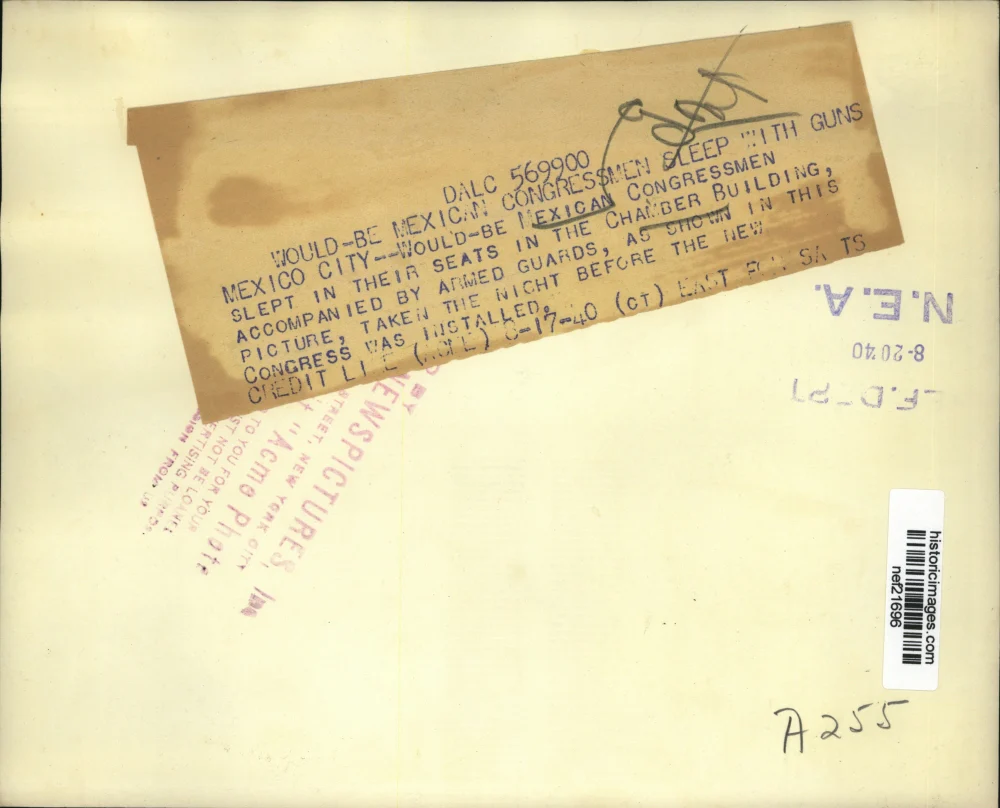 DALC 569900
WOULD-BE MEXICAN CONGRESSMEN SLEEP WITH GUNS
MEXICO CITY--WOULD-BE MEXICAN CONGRESSMEN
SLEPT IN THEIR SEATS IN THE CHAMBER BUILDING,
ACCOMPANIED BY ARMED GUARDS, AS SHOWN IN THIS
PICTURE, TAKEN THE NIGHT BEFORE THE NEW
CONGRESS WAS INSTALLED.
CREDIT (ACME) 8-17-40 (CT) EAST
N.E.A.
8-20 40
BY
NEWSPICTURES, Inc
STREET, NEW YORK CITY
"Acme Photo
TO YOU FOR YOUR
NOT BE LOANED
FROM US
historicimages.com
nef21696
A255